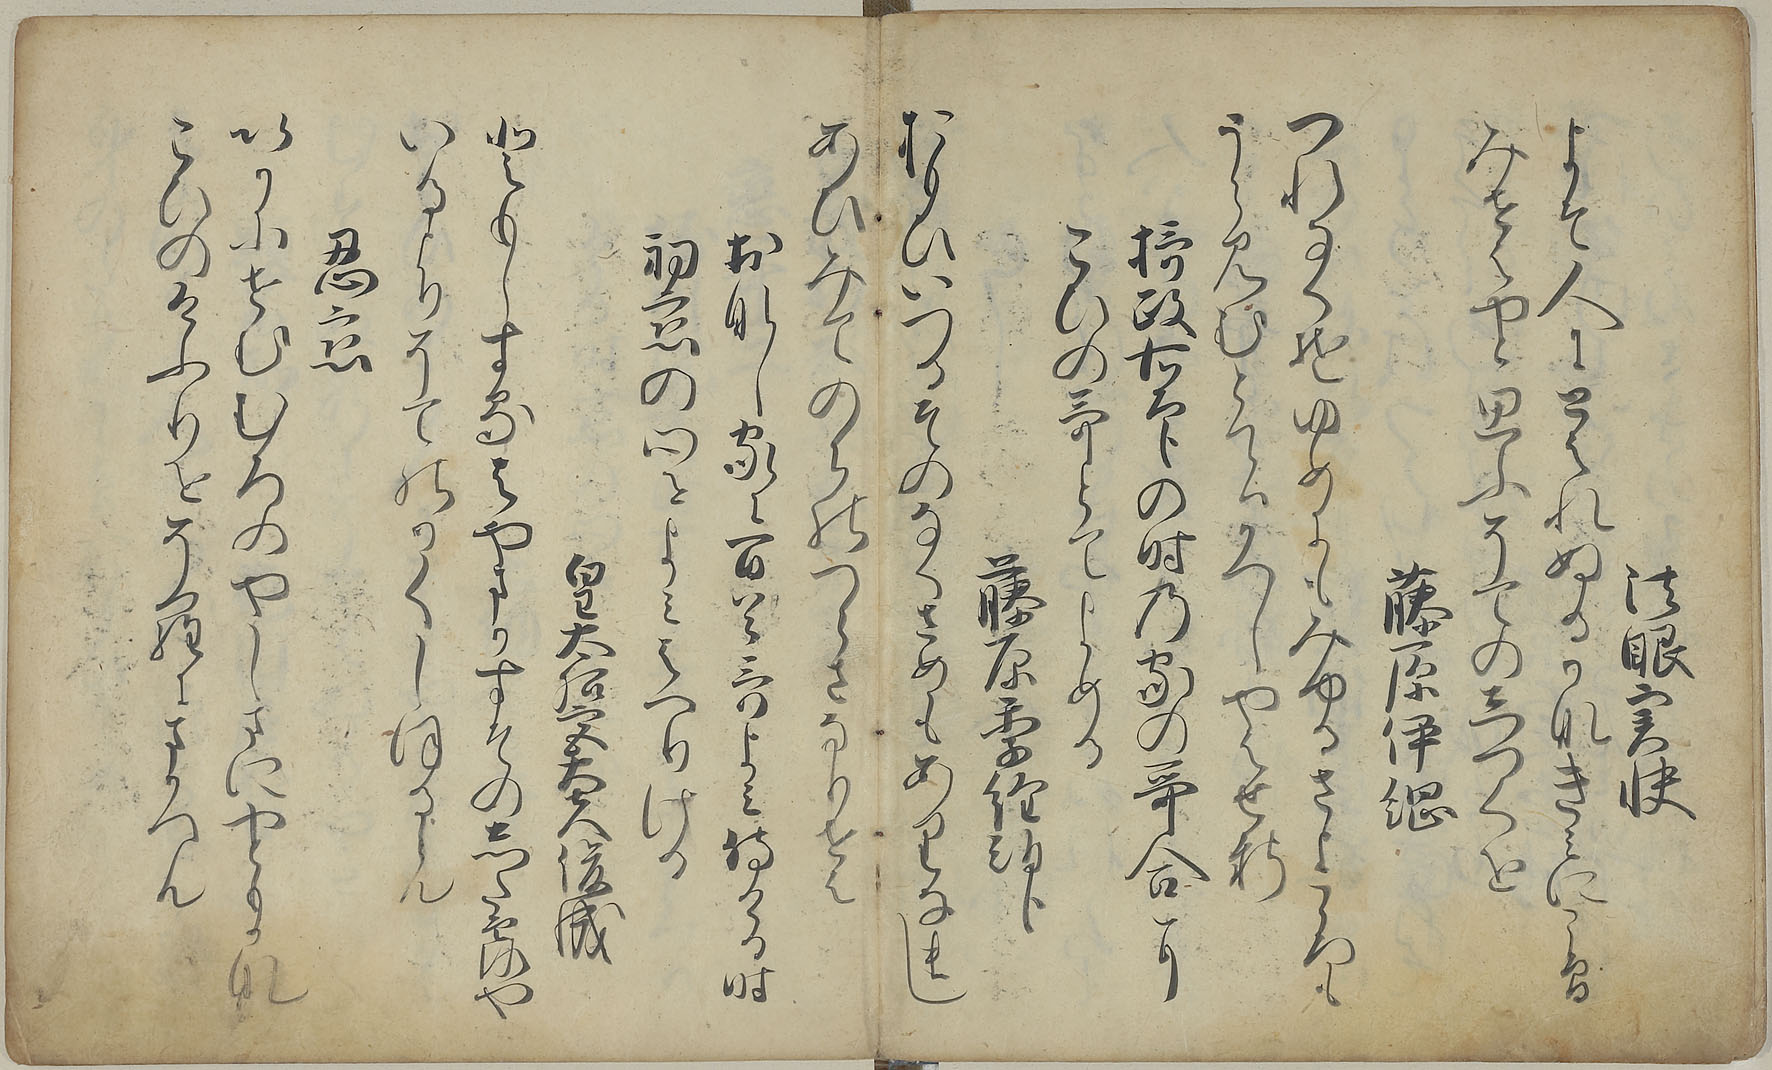 法眼実快
よそ人にとはれぬるかなきみにこそ
みせはやと思ふそての志つくを
藤原伊綱
つれなくそゆめにもみゆるさよころも
うらみむとてはかへしやはせし
摂政右大臣の時乃家の哥合に
こひの哥とてよめる
藤原季経朝臣
おもひいつるそのなくさめもありなまし
あひみてのちのつらさなりせは
おなし家に百首哥よみ侍ける時
初恋の心をよみはへりける
皇太后宮大夫俊成
ともしするはやまかすその志たつゆや
いるよりそてのかくしほるらん
忍恋
いかにせむむろのやしまにやともかな
こひのけふりをそらにまかへん